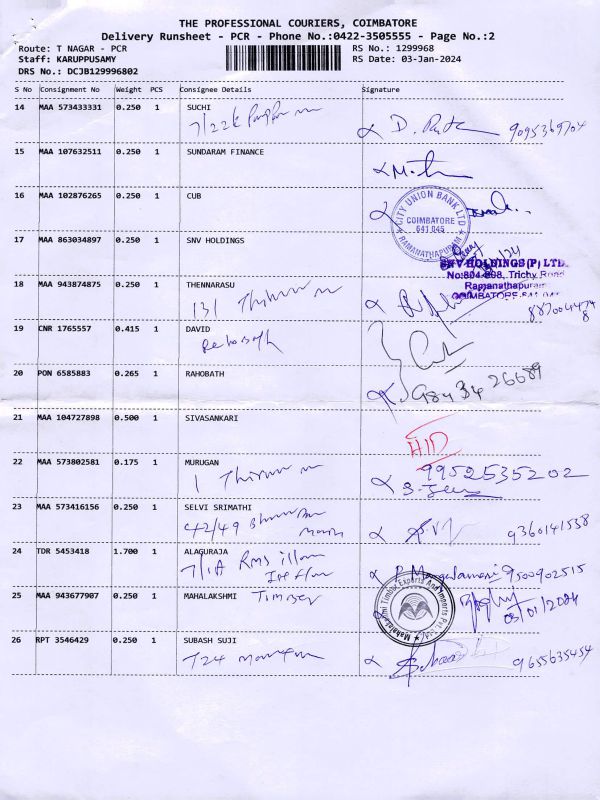 THE PROFESSIONAL COURIERS, COIMBATORE
Delivery Runsheet - PCR - Phone No.:0422-3505555 - Page No.:2
Route: T NAGAR - PCR RS No.: 1299968
Staff: KARUPPUSAMY RS Date: 03-Jan-2024
DRS No.: DCJB129996802
S No Consignment No Weight PCS Consignee Details Signature
14 MAA 573433331 0.250 1 SUCHI
7/22k
9095369704
15 MAA 107632511 0.250 1 SUNDARAM FINANCE
16 MAA 102876265 0.250 1 CUB
CITY UNION BANK LTD
COIMBATORE
641 045
RAMANATHAPURAM
17 MAA 863034897 0.250 1 SNV HOLDINGS
SNV HOLDINGS (P) LTD.
Trichy Road
Ramanathapuram
COIMBATORE-641 045
18 MAA 943874875 0.250 1 THENNARASU
131
19 CNR 1765557 0.415 1 DAVID
Rehoboth
20 PON 6585883 0.265 1 RAHOBATH
98434 26689
21 MAA 104727898 0.500 1 SIVASANKARI
22 MAA 573802581 0.175 1 MURUGAN
1
9952535202
23 MAA 573416156 0.250 1 SELVI SRIMATHI
42/49
9360141538
24 TDR 5453418 1.700 1 ALAGURAJA
7/1A RMS illam
Ist floor
9500902515
25 MAA 943677907 0.250 1 MAHALAKSHMI Timber
Mahalakshmi Timber Exports And Imports Pvt. Ltd
03/01/2024
26 RPT 3546429 0.250 1 SUBASH SUJI
724
9655635454